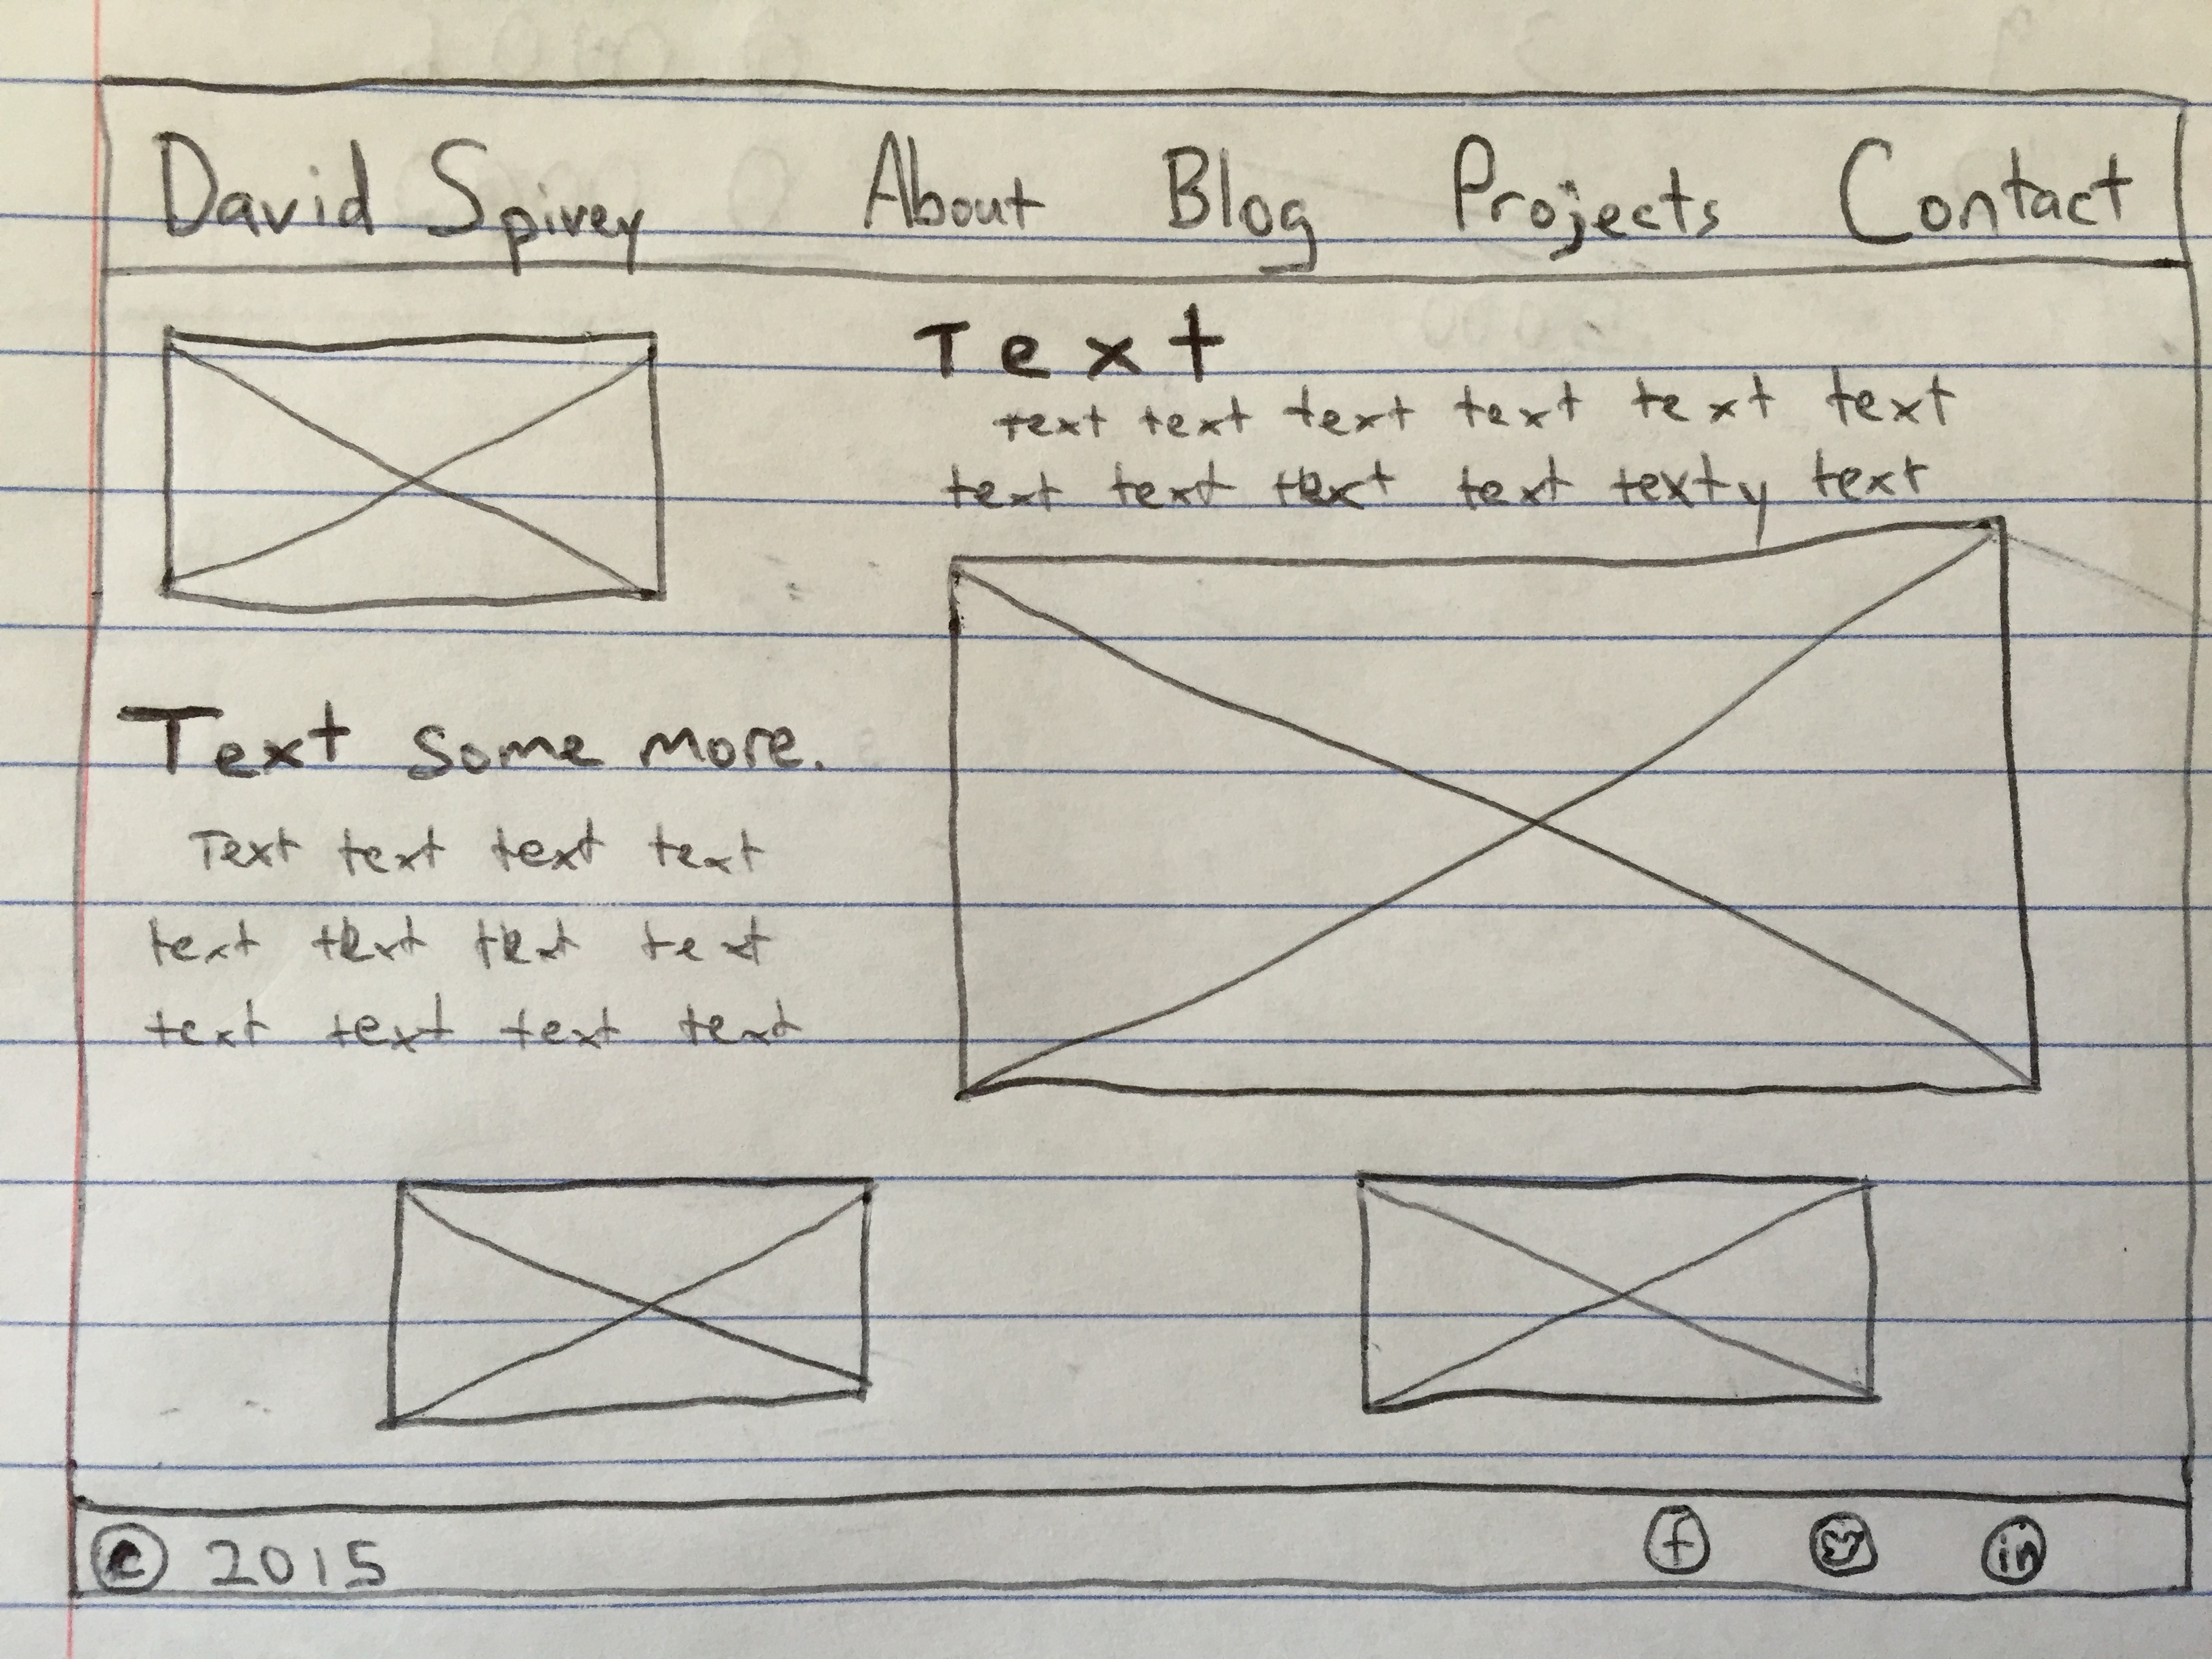 David Spivey About Blog Projects Contact
Text
text text text text text text
text text text text texty text
Text some more.
Text text text text
text text text text
text text text text
© 2015 f in